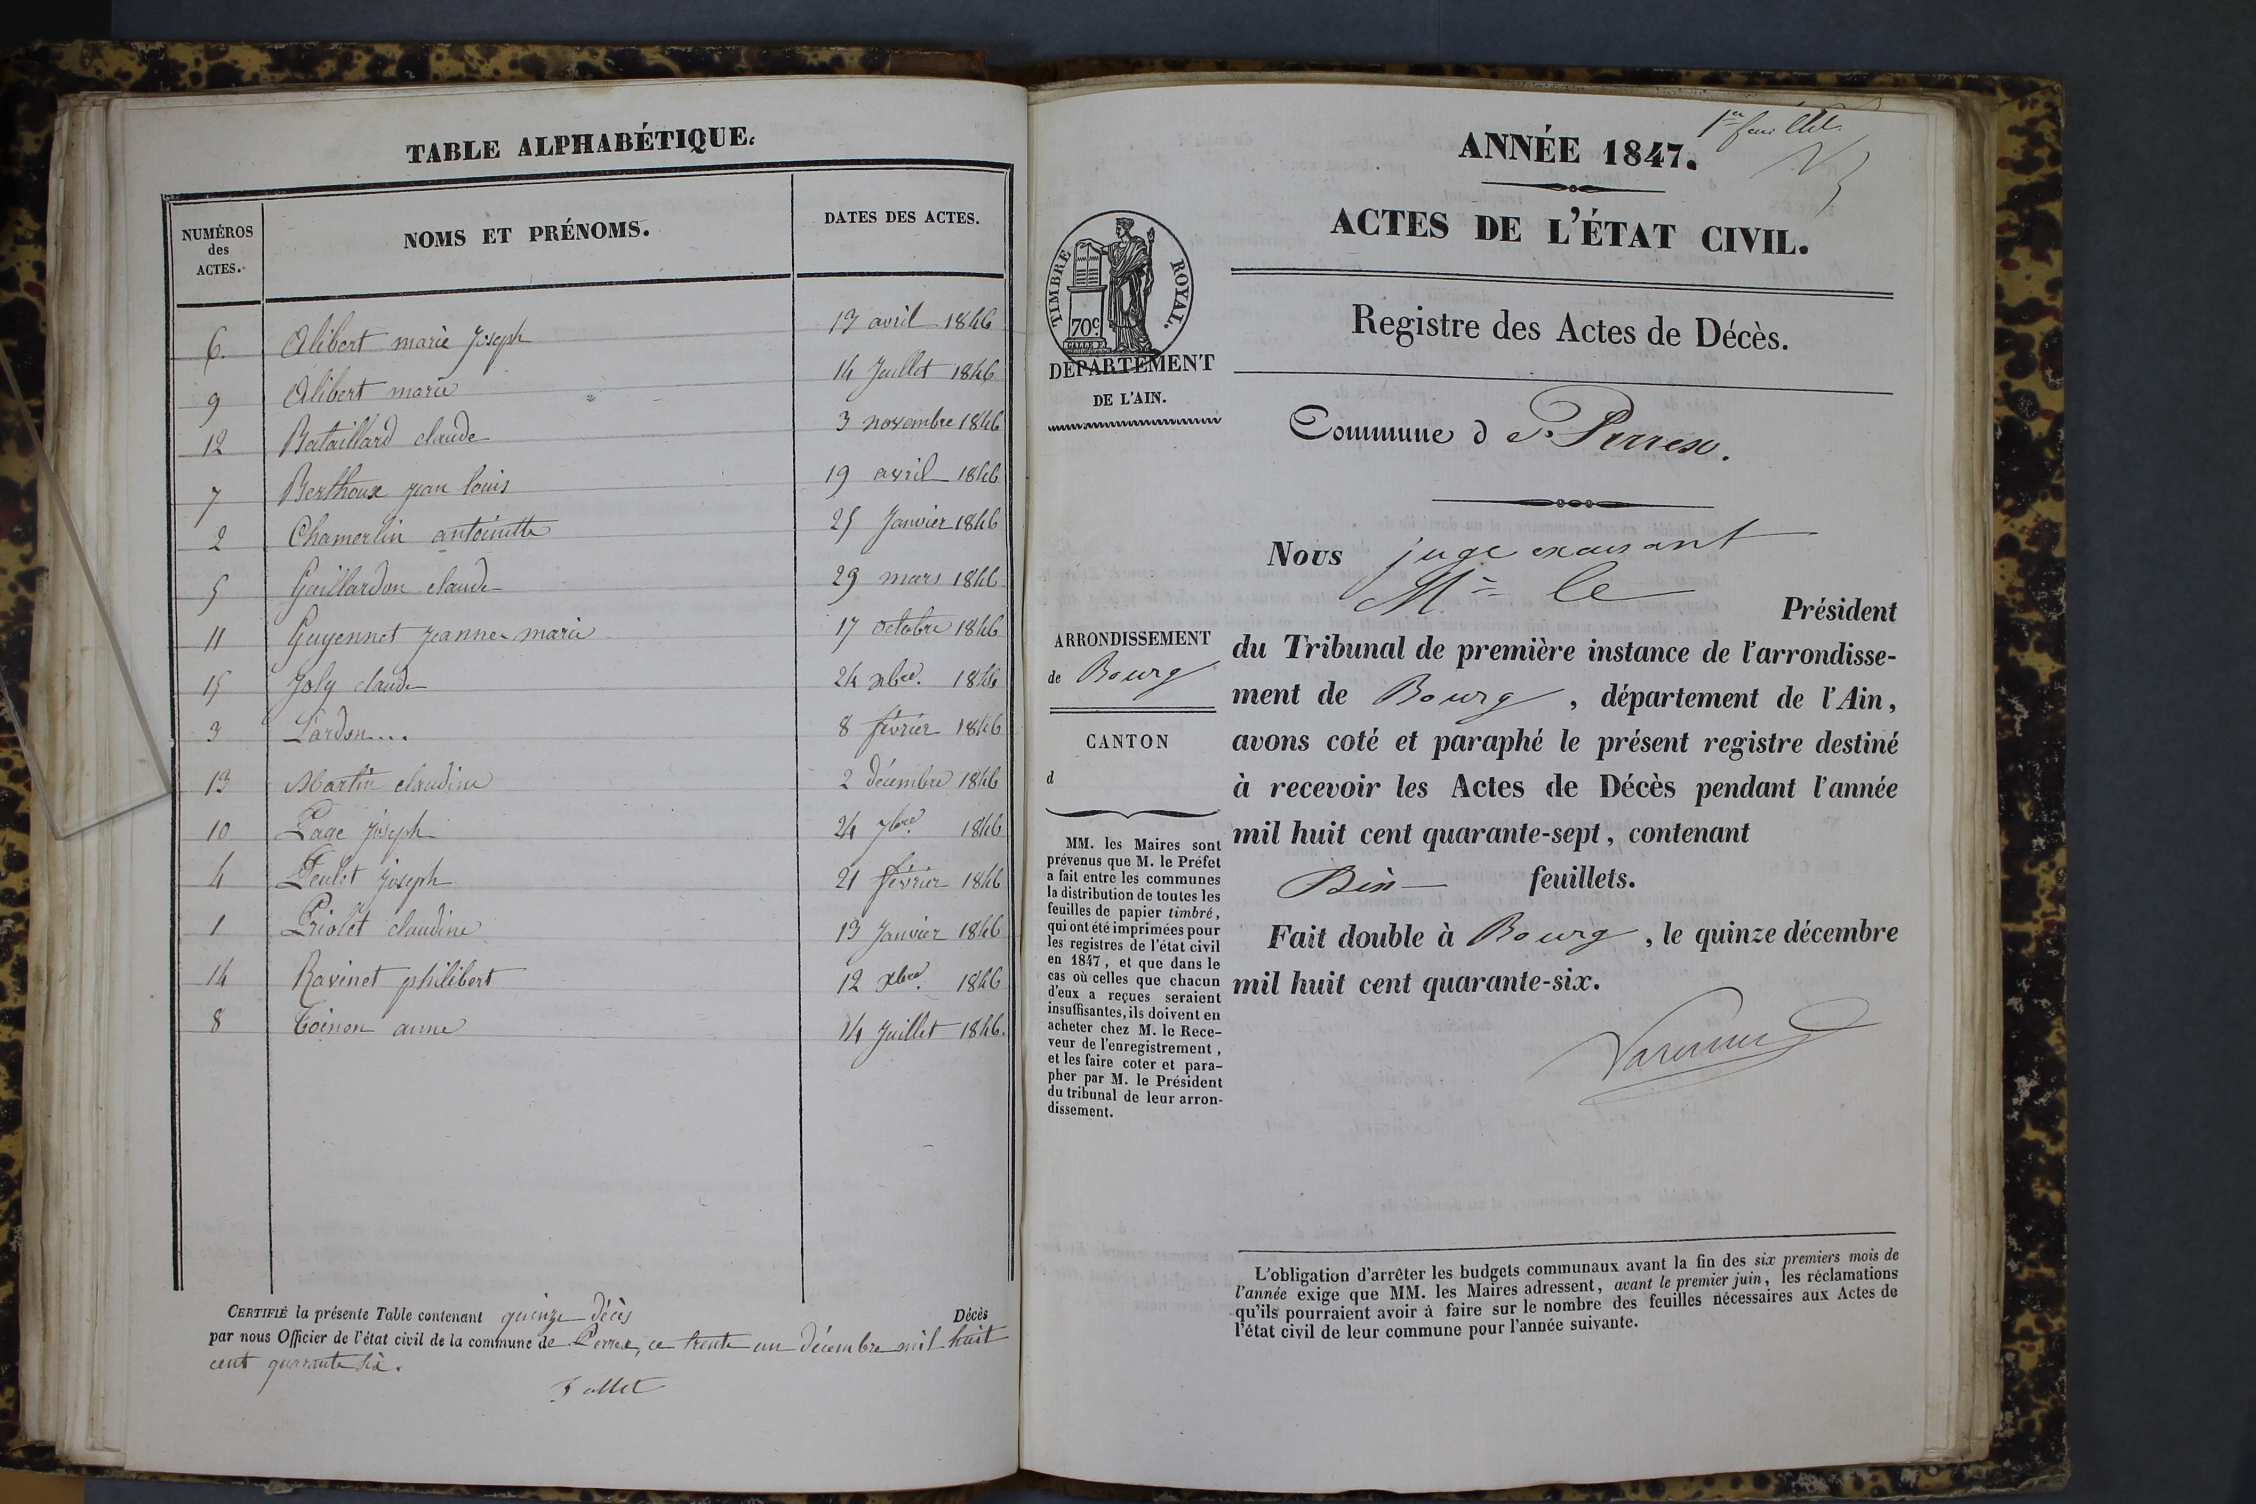 TABLE ALPHABÉTIQUE.
NUMÉROS des ACTES. NOMS ET PRÉNOMS. DATES DES ACTES.
6. Alibert marie Joseph 13 avril 1846
9 Alibert marie 14 Juillet 1846
12 Bataillard claude 3 novembre 1846
7 Berthoux jean louis 19 avril 1846
2 Chamerlin antoinette 25 Janvier 1846
5 Gaillardon claude 29 mars 1846
11 Guyennet jeanne marie 17 octobre 1846
15 Joly claude 24 xbre. 1846
3 Lardon.... 8 février 1846
13 Martin claudine 2 décembre 1846
10 Page joseph 24 7bre. 1846
4 Peulet joseph 21 février 1846
1 Priolet claudine 13 Janvier 1846
14 Ravinet philibert 12 xbre. 1846
8 Toinon anne 14 Juillet 1846.
CERTIFIÉ la présente Table contenant quinze décès Décès
par nous Officier de l'état civil de la commune de Perrex, ce trente un décembre mil huit
cent quarante six.
1er feuillet.
ANNÉE 1847.
ACTES DE L'ÉTAT CIVIL.
TIMBRE ROYAL.
70c.
DÉPARTEMENT
DE L'AIN.
Registre des Actes de Décès.
Commune d e Perrex.
Nous juge
Mr le
Président
du Tribunal de première instance de l'arrondisse-
ment de Bourg, département de l'Ain,
avons coté et paraphé le présent registre destiné
à recevoir les Actes de Décès pendant l'année
mil huit cent quarante-sept, contenant
feuillets.
Fait double à Bourg, le quinze décembre
mil huit cent quarante-six.
ARRONDISSEMENT
de Bourg
CANTON
d
MM. les Maires sont
prévenus que M. le Préfet
a fait entre les communes
la distribution de toutes les
feuilles de papier timbré,
qui ont été imprimées pour
les registres de l'état civil
en 1847, et que dans le
cas où celles que chacun
d'eux a reçues seraient
insuffisantes, ils doivent en
acheter chez M. le Rece-
veur de l'enregistrement,
et les faire coter et para-
pher par M. le Président
du tribunal de leur arron-
dissement.
L'obligation d'arrêter les budgets communaux avant la fin des six premiers mois de
l'année exige que MM. les Maires adressent, avant le premier juin, les réclamations
qu'ils pourraient avoir à faire sur le nombre des feuilles nécessaires aux Actes de
l'état civil de leur commune pour l'année suivante.